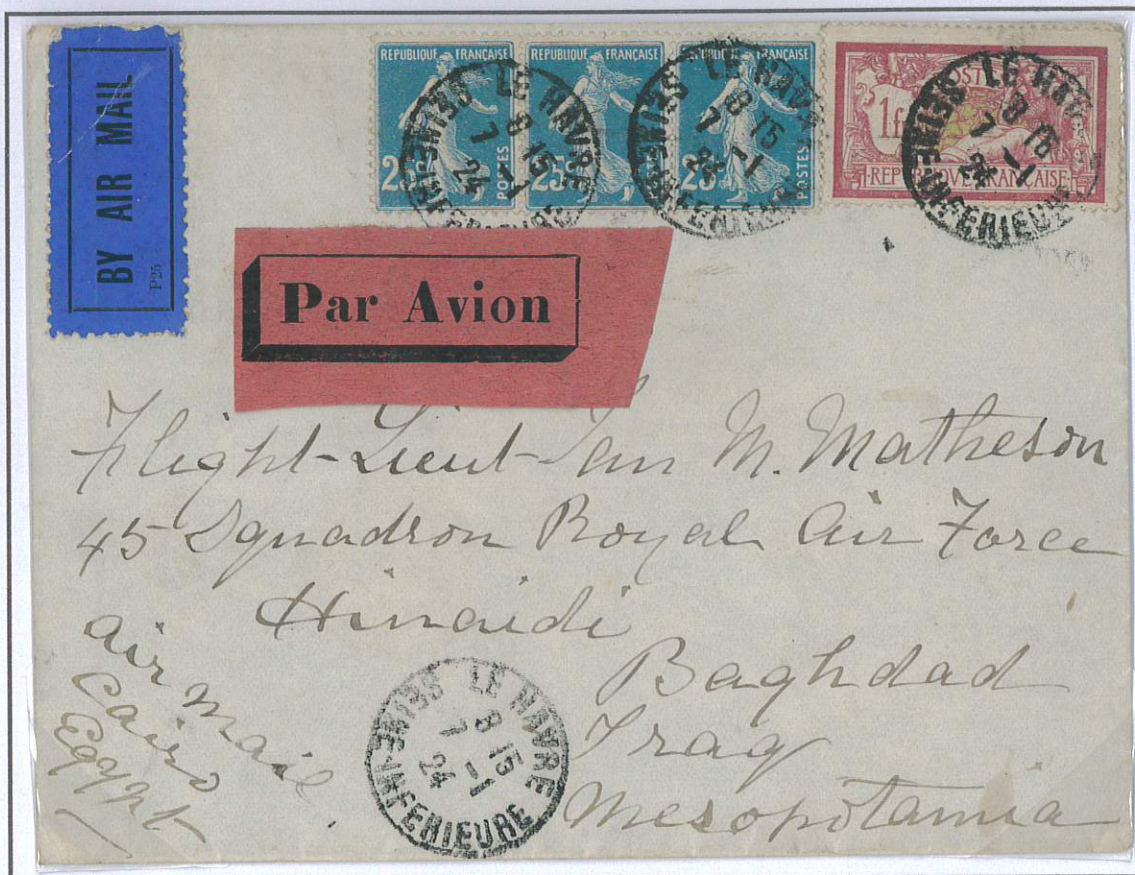 BY AIR MAIL
P25
REPUBLIQUE FRANÇAISE
25
REPUBLIQUE FRANÇAISE
25c
POSTES
REPUBLIQUE FRANÇAISE
25
POSTES
POST
1f
REPUBLIQUE FRANÇAISE
LE HAVRE
8 15
7 -1
24
SEINE-INFERIEURE
LE HAVRE
8 15
7 -1
24
SEINE-INFERIEURE
LE HAVRE
8 15
7 -1
24
SEINE-INFERIEURE
Par Avion
Flight-Lieut-Ian M. Matheson
45 Squadron Royal Air Force
Hinaidi
Baghdad
Iraq
Mesopotamia
air mail
Cairo
Egypt
LE HAVRE
8 15
7 -1
24
SEINE-INFERIEURE